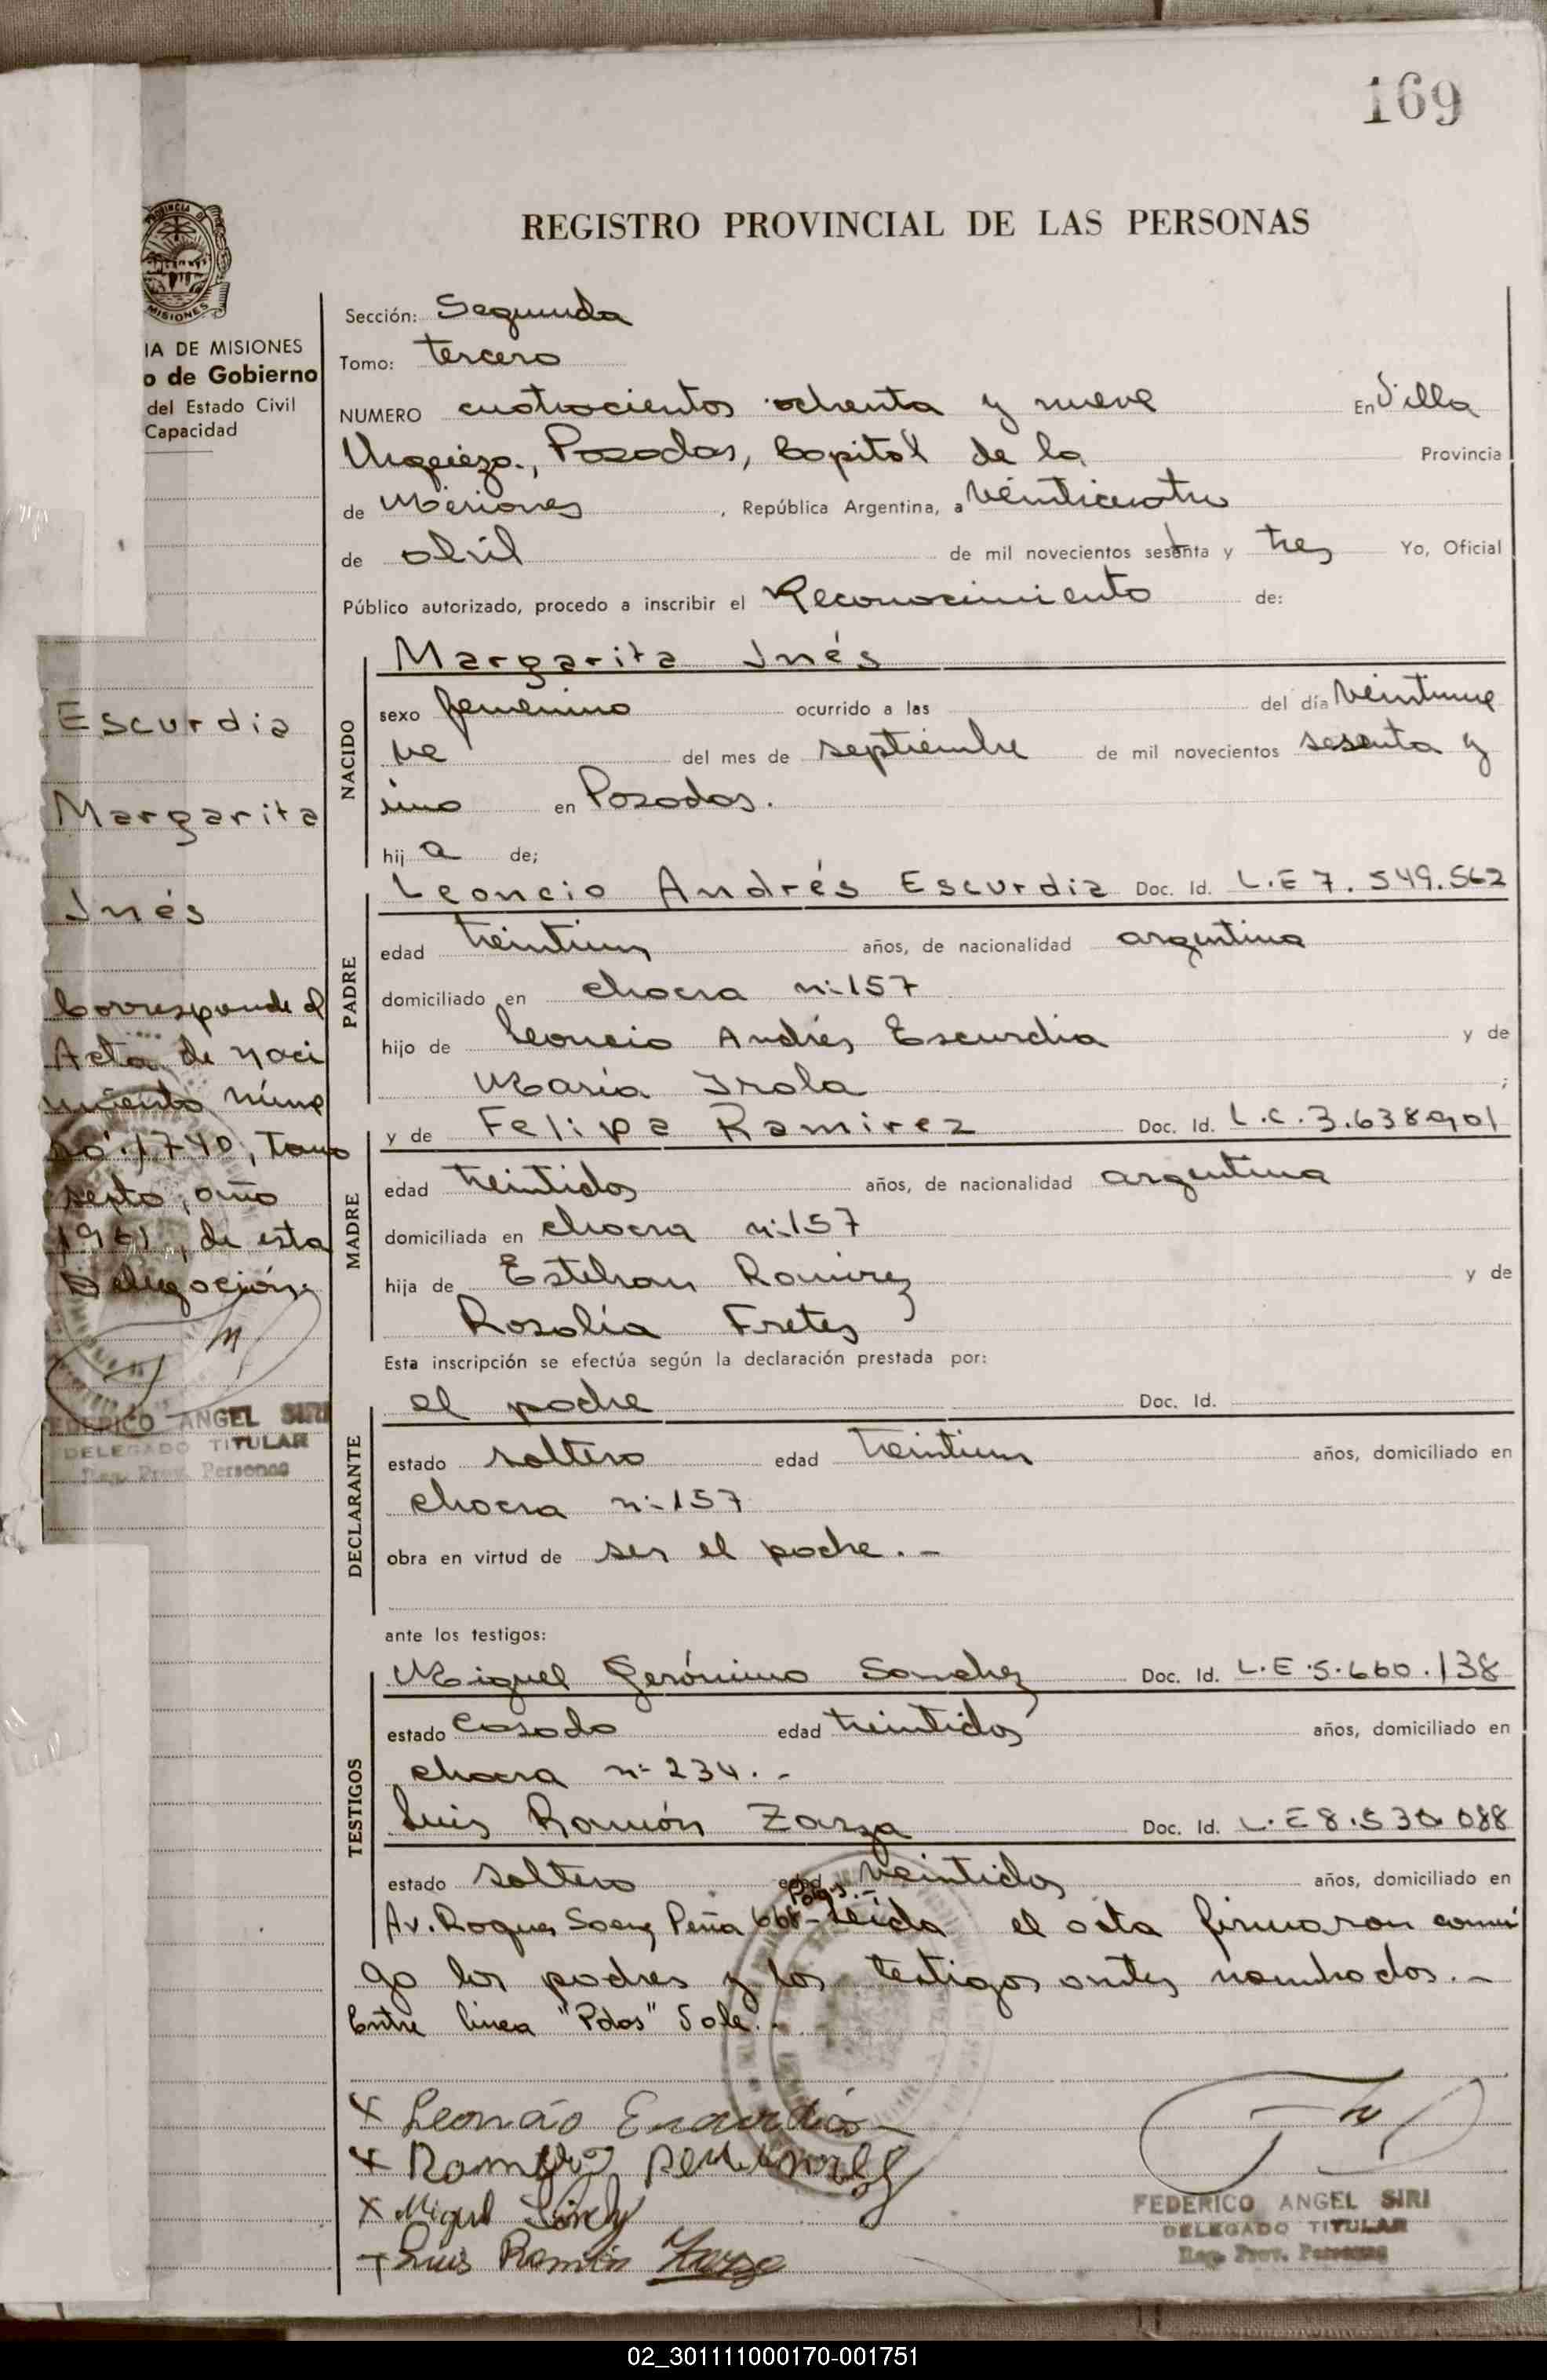 169
REGISTRO PROVINCIAL DE LAS PERSONAS
PROVINCIA DE
MISIONES
IA DE MISIONES
o de Gobierno
del Estado Civil
Capacidad
Sección: Segunda
Tomo: tercero
NUMERO cuatrocientos ochenta y nueve En Villa
Urquieza., Posadas, Capital de la Provincia
de Misiones, República Argentina, a veinticuatro
de abril de mil novecientos sesenta y tres Yo, Oficial
Público autorizado, procedo a inscribir el Reconocimiento de:
NACIDO
Margarita Inés
sexo femenino ocurrido a las del día veintinue
ve del mes de septiembre de mil novecientos sesenta y
uno en Posadas.
hij a de;
PADRE
Leoncio Andrés Escurdia Doc. Id. L.E 7.549.562
edad treintiun años, de nacionalidad argentina
domiciliado en chacra n: 157
hijo de Leoncio Andrés Escurdia y de
María Irala ;
MADRE
y de Felipa Ramirez Doc. Id. L.C.3.638901
edad treintidos años, de nacionalidad argentina
domiciliada en chacra n: 157
hija de Esteban Ramirez y de
Rosalía Fretes
Esta inscripción se efectúa según la declaración prestada por:
DECLARANTE
el padre Doc. Id.
estado soltero edad treintiun años, domiciliado en
chacra n: 157
obra en virtud de ser el padre.-
ante los testigos:
TESTIGOS
Miguel Gerónimo Sanchez Doc. Id. L.E.5.660.138
estado casado edad treintidos años, domiciliado en
chacra n: 234.-
Luis Ramón Zarza Doc. Id. L.E 8.530.088
estado soltero edad veintidos años, domiciliado en
Pdas.-
Av. Roques Saenz Peña 668- Leída el acta firmaron conmi
go los padres y los testigos antes nombrados.-
Entre línea "Pdas" Vale.-
X Leoncio Escurdia
X Ramirez
X Miguel
Luis Ramón Zarza
FEDERICO ANGEL SIRI
DELEGADO TITULAR
Reg. Prov. Personas
Escurdia
Margarita
Inés
Corresponde al
Acta de naci
miento núme
ro: 1740, Tomo
sexto, año
1961, de esta
Delegación
FEDERICO ANGEL SIRI
DELEGADO TITULAR
Reg. Prov. Personas
02_301111000170-001751